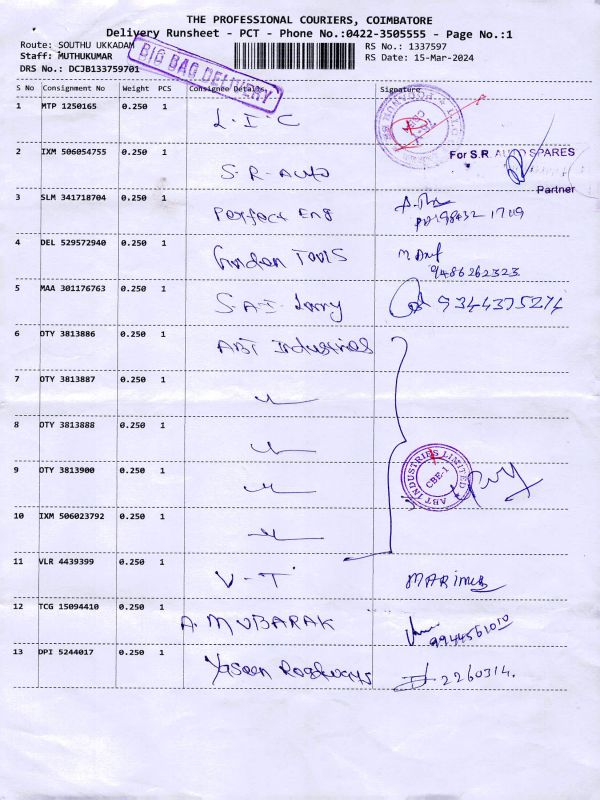 THE PROFESSIONAL COURIERS, COIMBATORE
Delivery Runsheet - PCT - Phone No.:0422-3505555 - Page No.:1
Route: SOUTHU UKKADAM
RS No.: 1337597
Staff: MUTHUKUMAR
RS Date: 15-Mar-2024
DRS No.: DCJB133759701
BIG BAG DELIVERY
S No Consignment No Weight PCS Consignee Details Signature
1 MTP 1250165 0.250 1 L.I.C
2 IXM 506054755 0.250 1 S.R. Auto
For S.R. AUTO SPARES
Partner
3 SLM 341718704 0.250 1 Perfect Eng
4 DEL 529572940 0.250 1 TOOLS
9486262323
5 MAA 301176763 0.250 1 S.A.I. Lorry 9344375274
6 OTY 3813886 0.250 1 ABT Industries
7 OTY 3813887 0.250 1
8 OTY 3813888 0.250 1
9 OTY 3813900 0.250 1
ABT INDUSTRIES LIMITED
CBE-1
10 IXM 506023792 0.250 1
11 VLR 4439399 0.250 1 V-T
12 TCG 15094410 0.250 1 A. MUBARAK
9944561010
13 DPI 5244017 0.250 1 Yaseen Roadways 2260314.